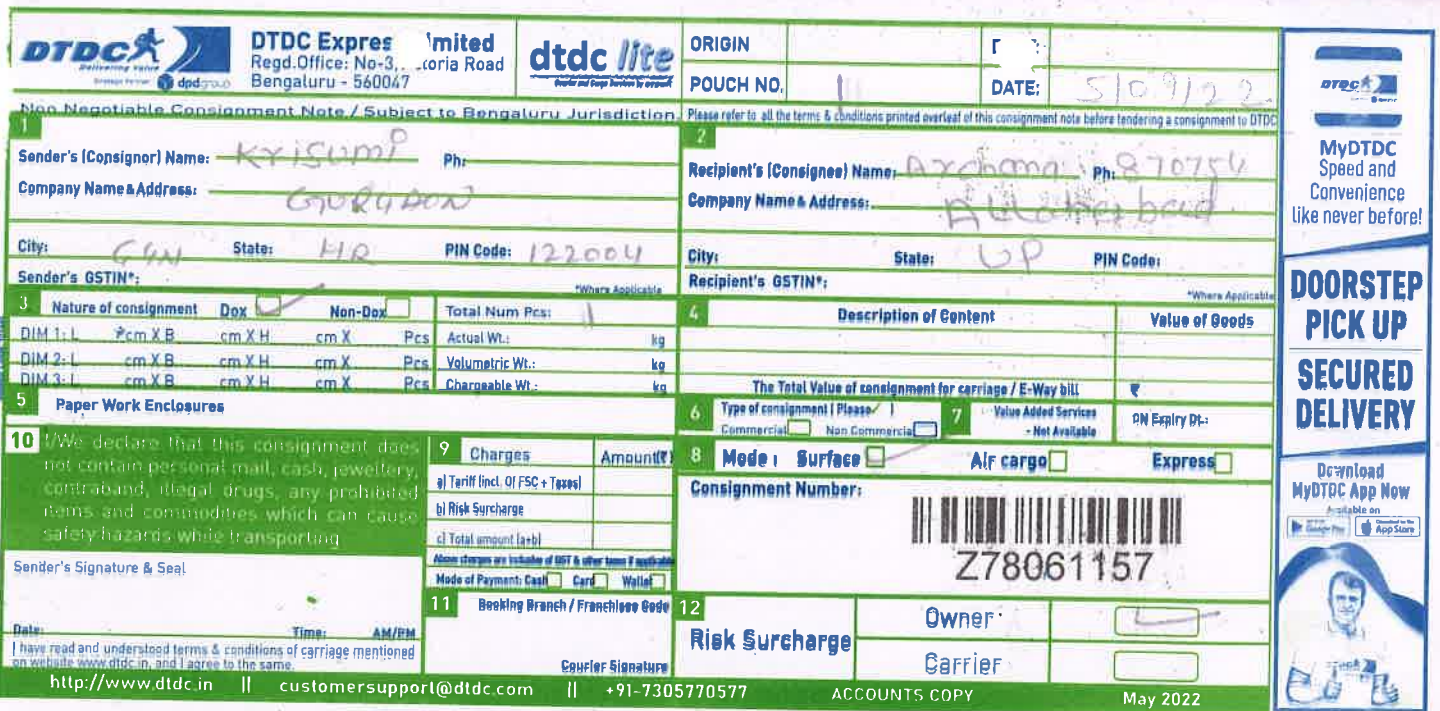 DTDC
Delivering Value
dpdgroup
DTDC Expres imited
Regd.Office: No-3, toria Road
Bengaluru - 560047
dtdc lite
ORIGIN
POUCH NO.
DATE: 5/09/22
Non Negotiable Consignment Note / Subject to Bengaluru Jurisdiction
Please refer to all the terms & conditions printed overleaf of this consignment note before tendering a consignment to DTDC
1
Sender's (Consignor) Name: Krisumi Ph:
Company Name & Address:
GURGAON
City: GGN State: HR PIN Code: 122004
Sender's GSTIN*:
*Where Applicable
2
Recipient's (Consignee) Name: Archana Ph: 870754
Company Name & Address:
City: State: UP PIN Code:
Recipient's GSTIN*:
*Where Applicable
3 Nature of consignment Dox Non-Dox
DIM 1: L cm X B cm X H cm X Pcs
DIM 2: L cm X B cm X H cm X Pcs
DIM 3: L cm X B cm X H cm X Pcs
Total Num Pcs: 1
Actual Wt.: kg
Volumetric Wt.: kg
Chargeable Wt.: kg
4 Description of Content Value of Goods
The Total Value of consignment for carriage / E-Way bill ₹
5 Paper Work Enclosures
6 Type of consignment ( Please ✓ )
Commercial Non Commercial
7 Value Added Services
- Not Available
DN Expiry Dt.:
8 Mode : Surface Air cargo Express
Consignment Number:
Z78061157
9 Charges Amount(₹)
a) Tariff (incl. Of FSC + Taxes)
b) Risk Surcharge
c) Total amount (a+b)
Above charges are inclusive of GST & other taxes if applicable
Mode of Payment: Cash Card Wallet
10 I/We declare that this consignment does
not contain personal mail, cash, jewellery,
contraband, illegal drugs, any prohibited
items and commodities which can cause
safety hazards while transporting
Sender's Signature & Seal
Date: Time: AM/PM
I have read and understood terms & conditions of carriage mentioned
on website www.dtdc.in, and I agree to the same.
11 Booking Branch / Franchisee Code
Courier Signature
12 Risk Surcharge
Owner
Carrier
http://www.dtdc.in || customersupport@dtdc.com || +91-7305770577 ACCOUNTS COPY May 2022
DTDC
MyDTDC
Speed and
Convenience
like never before!
DOORSTEP
PICK UP
SECURED
DELIVERY
Download
MyDTDC App Now
Available on
Google Play
App Store